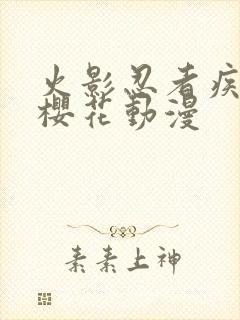 火影忍者疾
櫻花動漫
素素上神